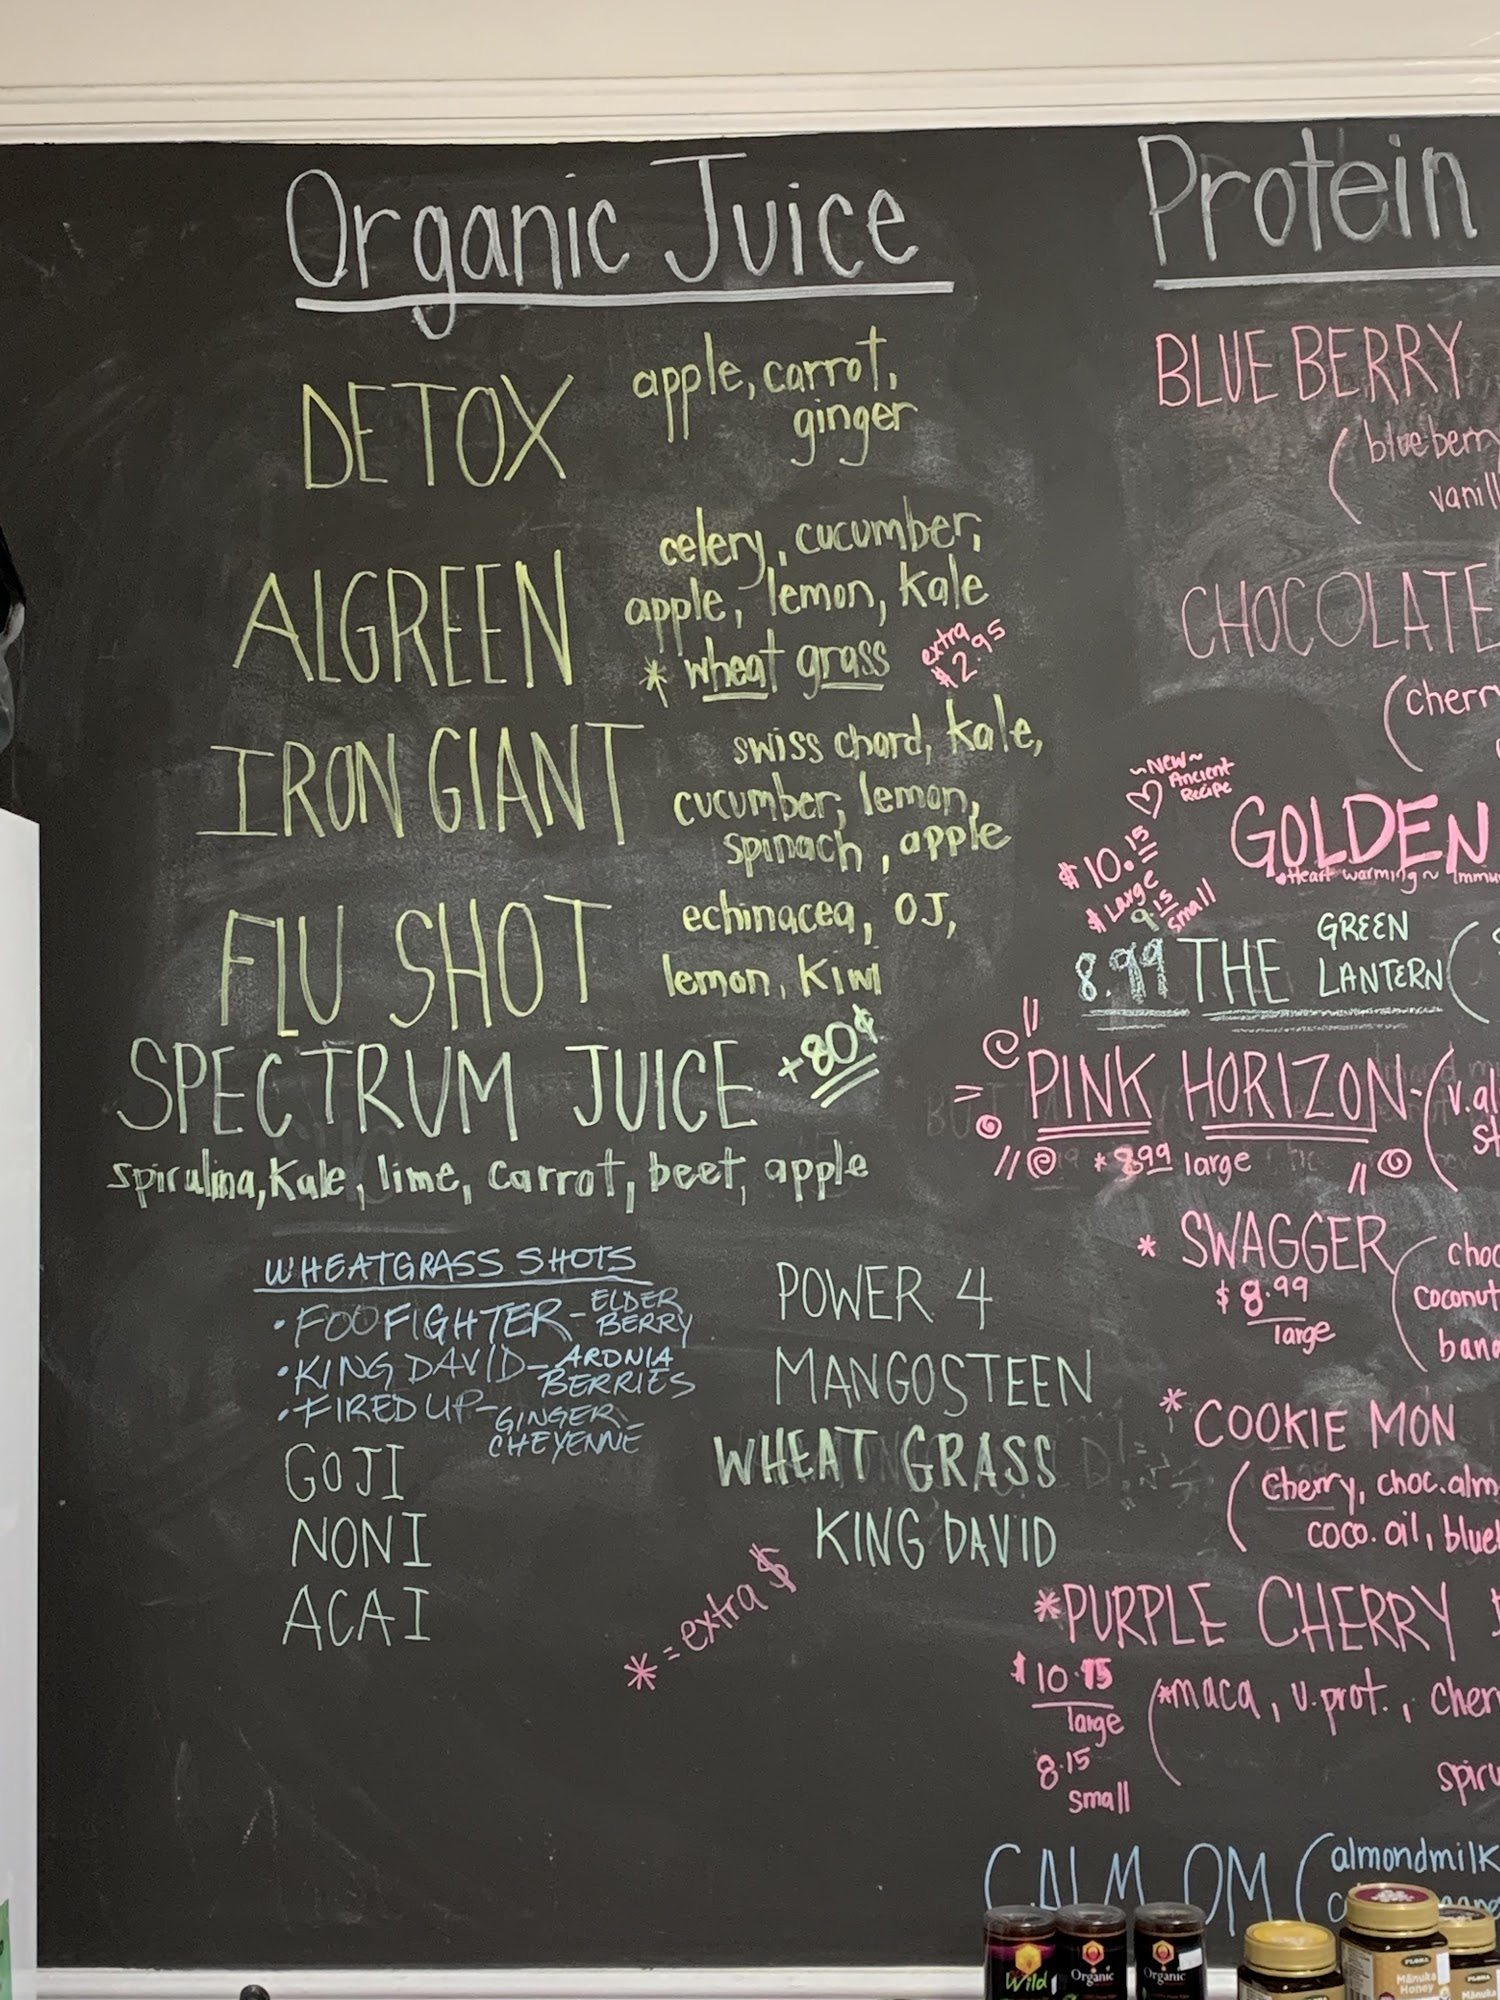 Organic Juice
DETOX
apple, carrot,
ginger
ALGREEN
celery, cucumber,
apple, lemon, kale
* wheat grass
extra
$2.95
IRON GIANT
swiss chard, kale,
cucumber, lemon,
spinach, apple
FLU SHOT
echinacea, OJ,
lemon, kiwi
SPECTRUM JUICE +80¢
spirulina, kale, lime, carrot, beet, apple
WHEATGRASS SHOTS
• FOO FIGHTER - ELDER
BERRY
• KING DAVID - ARONIA
BERRIES
• FIRED UP - GINGER
CHEYENNE
GOJI
NONI
ACAI
POWER 4
MANGOSTEEN
WHEAT GRASS
KING DAVID
* = extra $
Protein
BLUEBERRY
(blueberry
CHOCOLATE
(cherry
~New~
Ancient
Recipe
$10.15
Large
$9.15
small
GOLDEN
Heart warming ~
8.99 THE GREEN
LANTERN (
PINK HORIZON - (
* 8.99 large
* SWAGGER
$8.99
large
coconut
* COOKIE MON
(cherry, choc.
coco. oil,
* PURPLE CHERRY
$10.95
large
8.15
small
(*maca, v.prot.,
CALM OM (almondmilk
Wild
Organic
Organic
FLORA
Mānuka
Honey
FLORA
Mānuka